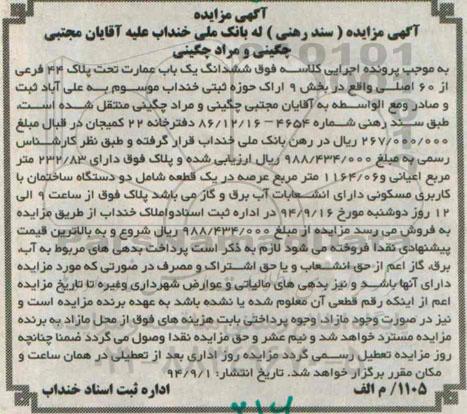 آگهی مزایده
آگهی مزایده ( سند رهنی ) له بانک ملی خنداب علیه آقایان مجتبی
چگینی و مراد چگینی
به موجب پرونده اجرایی کلاسه فوق ششدانگ یک باب عمارت تحت پلاک ۴۴ فرعی
از ۶۰ اصلی واقع در بخش ۹ اراک حوزه ثبتی خنداب موسوم به علی آباد ثبت
و صادر ومع الواسطه به آقایان مجتبی چگینی و مراد چگینی منتقل شده است،
طبق سند رهنی شماره ۴۶۵۴- ۸۶/۱۲/۱۶ دفترخانه ۲۲ کمیجان در قبال مبلغ
۲۶۷/۰۰۰/۰۰۰ ریال در رهن بانک ملی خنداب قرار گرفته و طبق نظر کارشناس
رسمی به مبلغ ۹۸۸/۴۳۴/۰۰۰ ریال ارزیابی شده و پلاک فوق دارای ۲۳۲/۸۳ متر
مربع اعیانی و۱۱۶۴/۰۶ متر مربع عرصه در یک قطعه شامل دو دستگاه ساختمان با
کاربری مسکونی دارای انشعابات آب برق و گاز می باشد پلاک فوق از ساعت ۹ الی
۱۲ روز دوشنبه مورخ ۹۴/۹/۱۶ در اداره ثبت اسنادواملاک خنداب از طریق مزایده
به فروش می رسد مزایده از مبلغ ۹۸۸/۴۳۴/۰۰۰ ریال شروع و به بالاترین قیمت
پیشنهادی نقدا فروخته می شود لازم به ذکر است پرداخت بدهی های مربوط به آب،
برق، گاز اعم از حق انشعاب و یا حق اشتراک و مصرف در صورتی که مورد مزایده
دارای آنها باشد و نیز بدهی های مالیاتی و عوارض شهرداری وغیره تا تاریخ مزایده
اعم از اینکه رقم قطعی آن معلوم شده یا نشده باشد به عهده برنده مزایده است و
نیز در صورت وجود مازاد، وجوه پرداختی بابت هزینه های فوق از محل مازاد به برنده
مزایده مسترد خواهد شد و نیم عشر و حق مزایده نقدا وصول می گردد ضمنا چنانچه
روز مزایده تعطیل رسمی گردد مزایده روز اداری بعد از تعطیلی در همان ساعت و
مکان مقرر برگزار خواهد شد. تاریخ انتشار: ۹۴/۹/۱
۱۱۰۵/ م الف
اداره ثبت اسناد خنداب